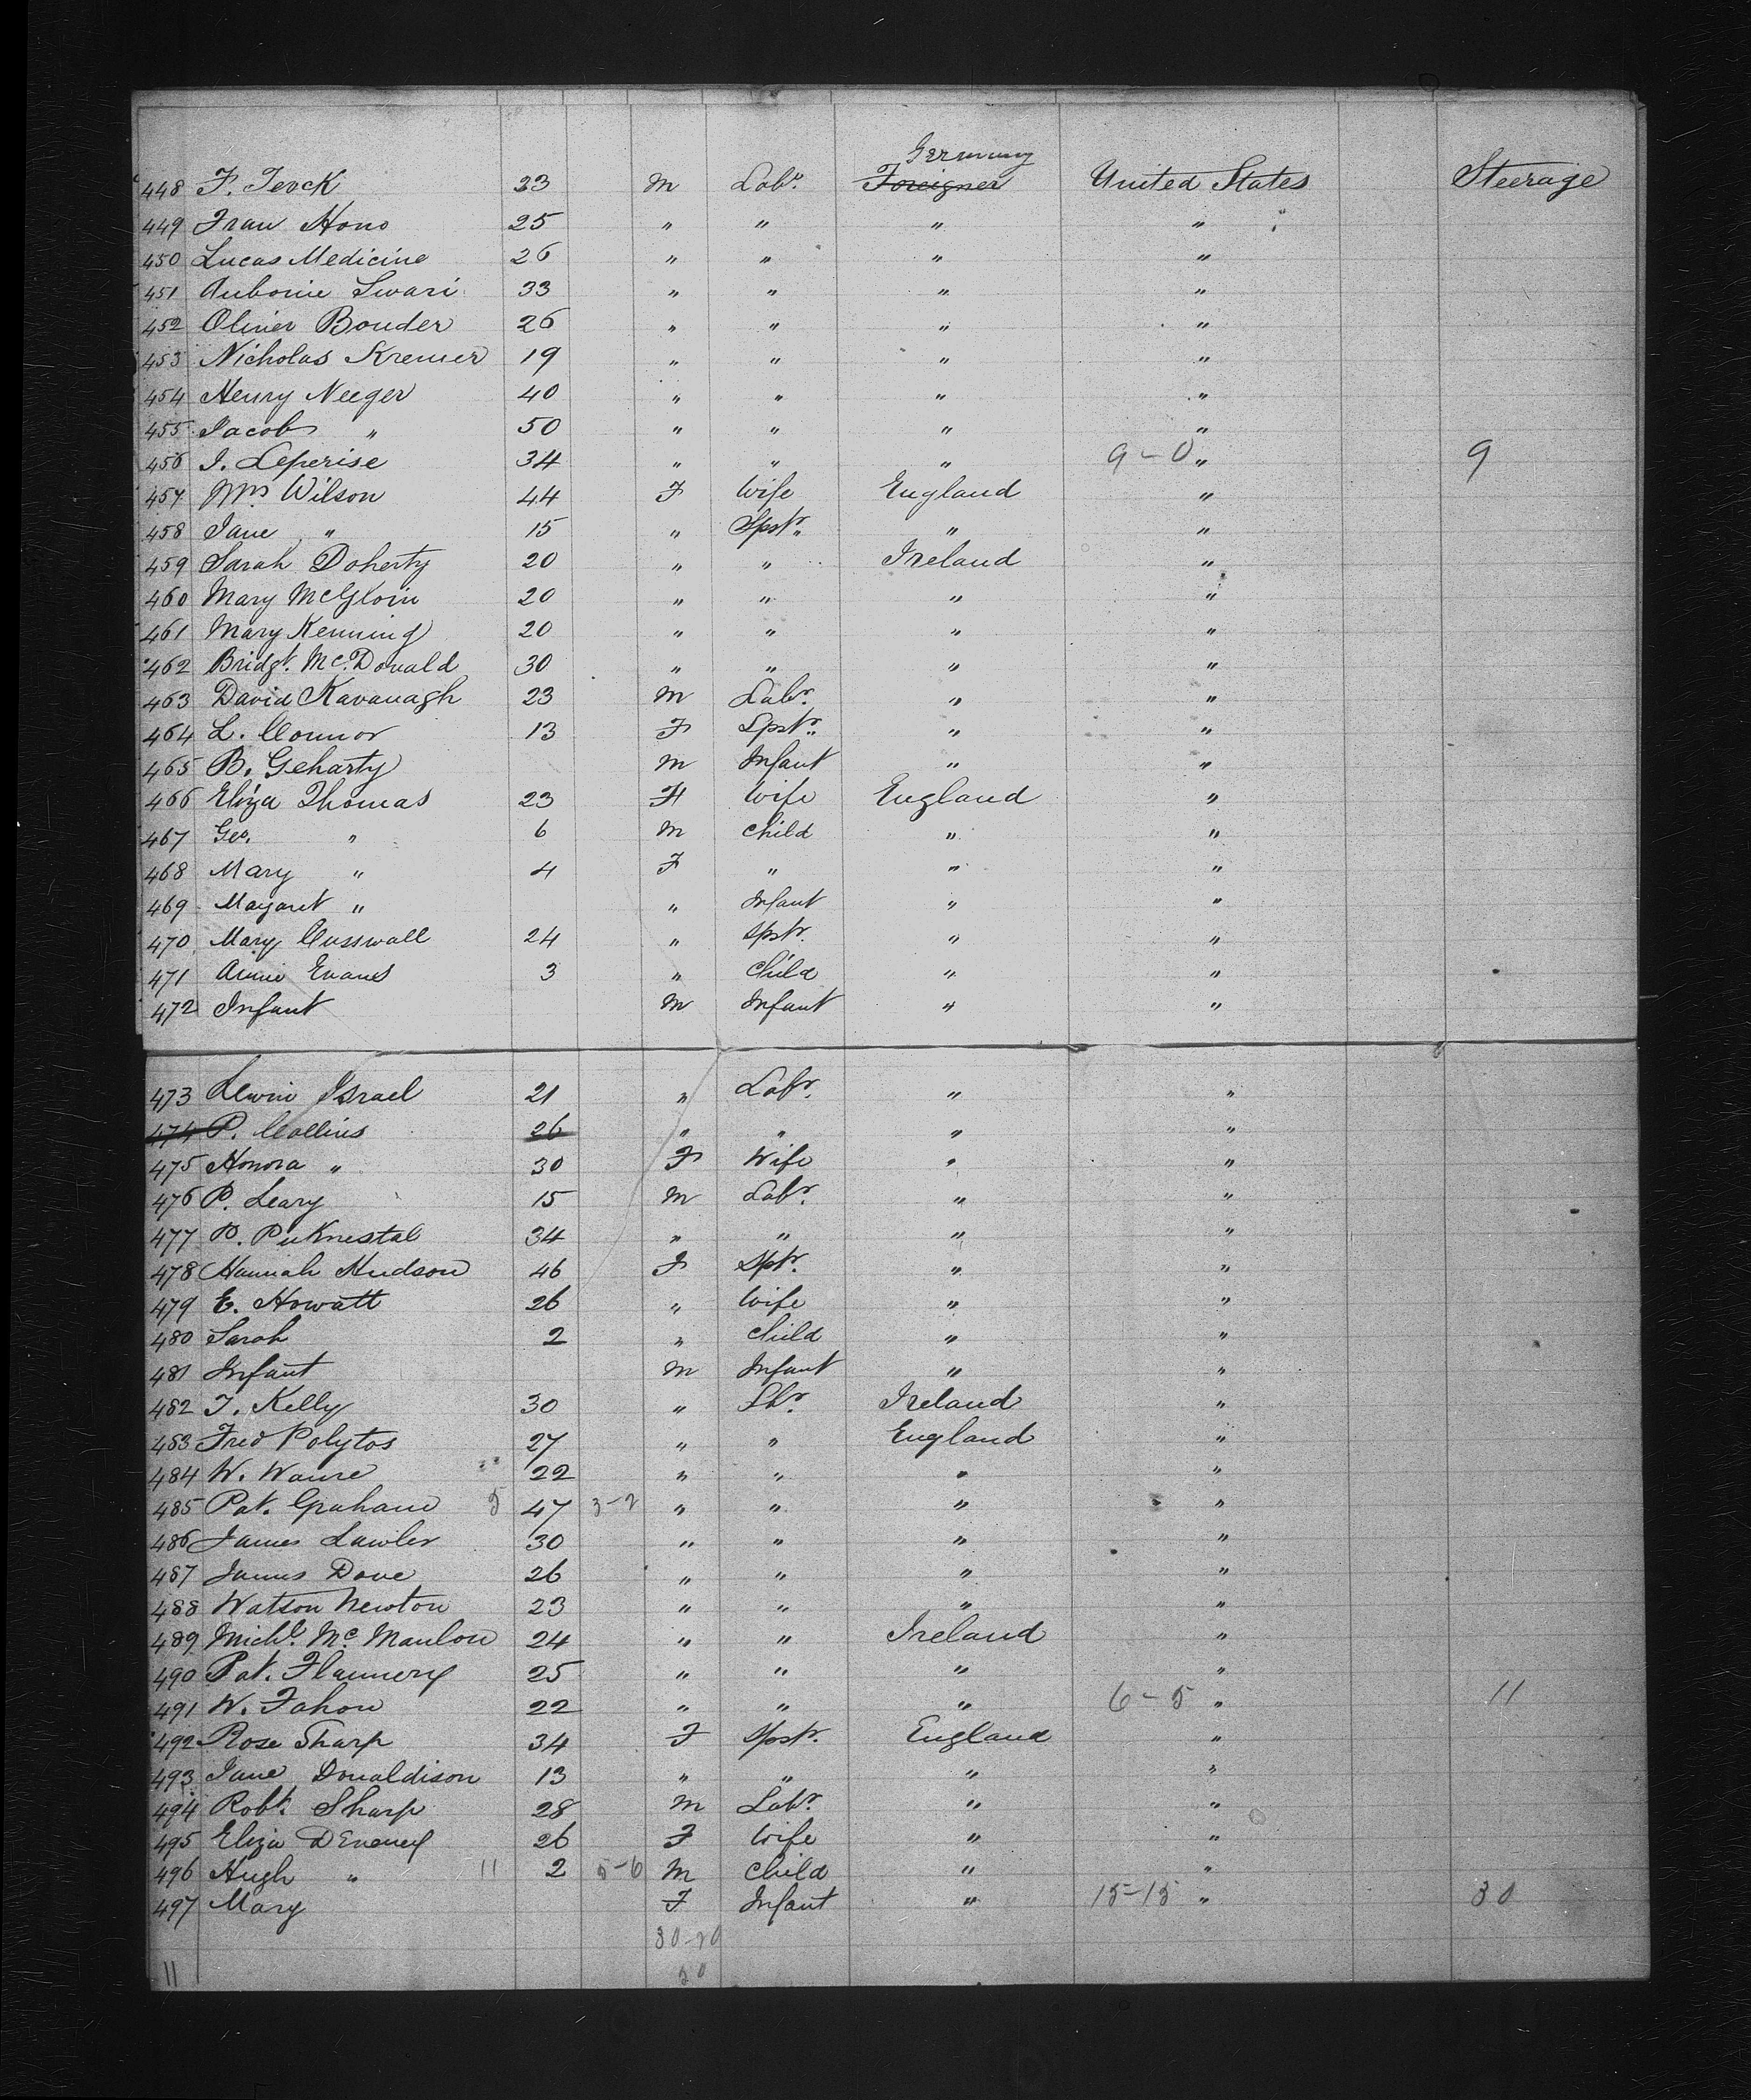 Germany
448 F. Jerck 23 M Labr. Foreigner United States Steerage
449 Frau Hono 25 " " " "
450 Lucas Medicine 26 " " " "
451 Aubonie Swari 33 " " " "
452 Oliver Bouder 26 " " " "
453 Nicholas Kremer 19 " " " "
454 Henry Neeger 40 " " " "
455 Jacob " 50 " " " "
456 J. Leperise 34 " " " 9-0 " 9
457 Mrs Wilson 44 F Wife England "
458 Jane " 15 " Spstr. " "
459 Sarah Doherty 20 " " Ireland "
460 Mary McGloin 20 " " " "
461 Mary Kenning 20 " " " "
462 Bridgt. McDonald 30 " " " "
463 David Kavanagh 23 M Labr. " "
464 L. Connor 13 F Spstr. " "
465 B. Geharty M Infant " "
466 Eliza Thomas 23 F Wife England "
467 Geo. " 6 M Child " "
468 Mary " 4 F " " "
469 Margaret " " Infant " "
470 Mary Cusswall 24 " Spstr. " "
471 Annie Evans 3 " Child " "
472 Infant M Infant " "
473 Lewin Israel 21 " Labr. " "
474 P. Collins 26 " " " "
475 Honora " 30 F Wife " "
476 P. Leary 15 M Labr. " "
477 P. 34 " " " "
478 Hannah Hudson 46 F Sptr. " "
479 E. Howatt 26 " Wife " "
480 Sarah 2 " Child " "
481 Infant M Infant " "
482 T. Kelly 30 " Lbr. Ireland "
483 Fred Polytos 27 " " England "
484 W. Waure 22 " " " "
485 Pat. Graham 5 47 3-2 " " " "
486 James Lawler 30 " " " "
487 James Dove 26 " " " "
488 Watson Newton 23 " " " "
489 Michl. Mc Manlon 24 " " Ireland "
490 Pat. Flannery 25 " " " "
491 W. Fahon 22 " " " 6-5 " 11
492 Rose Sharp 34 F Spstr. England "
493 Jane Donaldison 13 " " " "
494 Robt. Sharp 28 M Labr. " "
495 Eliza Deneney 26 F Wife " "
496 Hugh " 11 2 5-6 M Child " "
497 Mary F Infant " 15-15 " 30
30-20
11 50